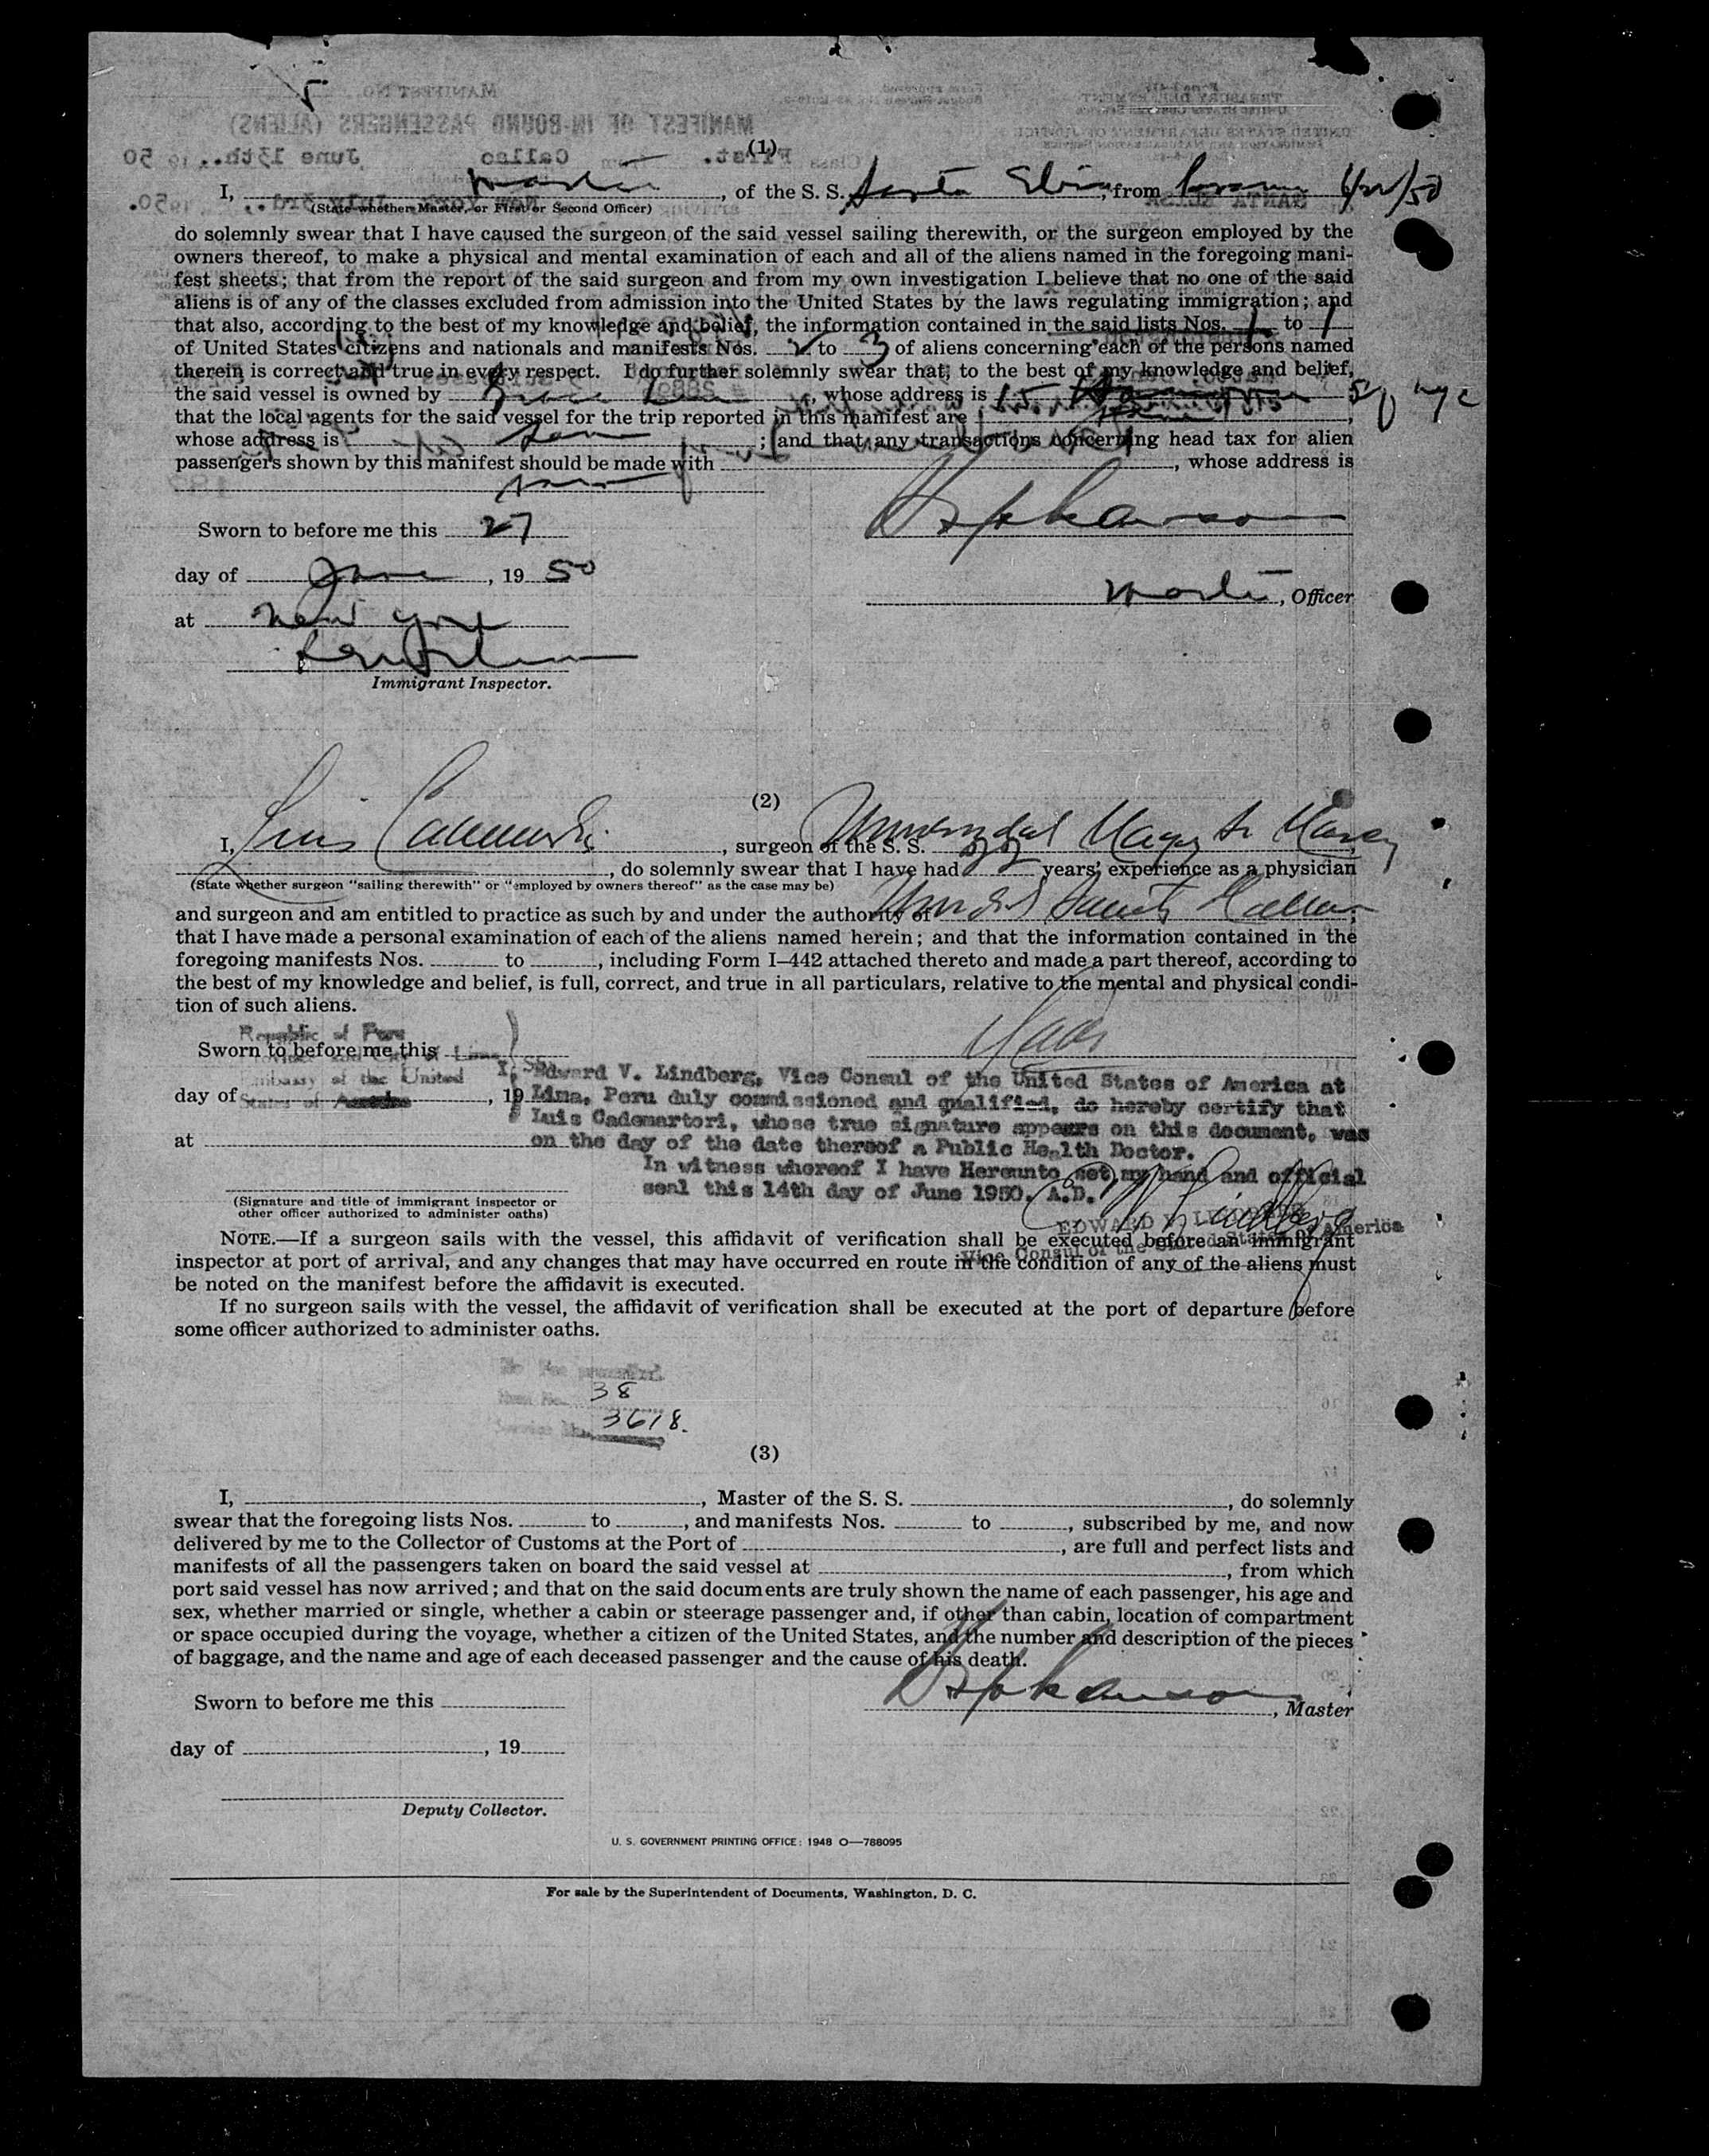 (1)
I, Master, of the S. S. Santa Elisa, from
(State whether Master, or First or Second Officer)
do solemnly swear that I have caused the surgeon of the said vessel sailing therewith, or the surgeon employed by the
owners thereof, to make a physical and mental examination of each and all of the aliens named in the foregoing mani-
fest sheets; that from the report of the said surgeon and from my own investigation I believe that no one of the said
aliens is of any of the classes excluded from admission into the United States by the laws regulating immigration; and
that also, according to the best of my knowledge and belief, the information contained in the said lists Nos. 1 to 1
of United States citizens and nationals and manifests Nos. 2 to 3 of aliens concerning each of the persons named
therein is correct and true in every respect. I do further solemnly swear that, to the best of my knowledge and belief,
the said vessel is owned by Grace Line, whose address is
that the local agents for the said vessel for the trip reported in this manifest are
whose address is same; and that any transactions concerning head tax for alien
passengers shown by this manifest should be made with, whose address is
same
Sworn to before me this 27
day of June, 19 50
at New York
Master, Officer
Immigrant Inspector.
(2)
I, Luis Cademartori, surgeon of the S. S.
, do solemnly swear that I have had years' experience as a physician
(State whether surgeon "sailing therewith" or "employed by owners thereof" as the case may be)
and surgeon and am entitled to practice as such by and under the authority of
that I have made a personal examination of each of the aliens named herein; and that the information contained in the
foregoing manifests Nos. to , including Form I-442 attached thereto and made a part thereof, according to
the best of my knowledge and belief, is full, correct, and true in all particulars, relative to the mental and physical condi-
tion of such aliens.
Republic of Peru
Sworn to before me this
Embassy of the United
States of America
day of , 19
at
I, Edward V. Lindberg, Vice Consul of the United States of America at
Lima, Peru duly commissioned and qualified, do hereby certify that
Luis Cademartori, whose true signature appears on this document, was
on the day of the date thereof a Public Health Doctor.
In witness whereof I have Hereunto set my hand and official
seal this 14th day of June 1950. A.D.
(Signature and title of immigrant inspector or
other officer authorized to administer oaths)
EDWARD V. LINDBERG
Vice Consul of the United States of America
NOTE.—If a surgeon sails with the vessel, this affidavit of verification shall be executed before an immigrant
inspector at port of arrival, and any changes that may have occurred en route in the condition of any of the aliens must
be noted on the manifest before the affidavit is executed.
If no surgeon sails with the vessel, the affidavit of verification shall be executed at the port of departure before
some officer authorized to administer oaths.
38
3618.
(3)
I, , Master of the S. S. , do solemnly
swear that the foregoing lists Nos. to , and manifests Nos. to , subscribed by me, and now
delivered by me to the Collector of Customs at the Port of , are full and perfect lists and
manifests of all the passengers taken on board the said vessel at , from which
port said vessel has now arrived; and that on the said documents are truly shown the name of each passenger, his age and
sex, whether married or single, whether a cabin or steerage passenger and, if other than cabin, location of compartment
or space occupied during the voyage, whether a citizen of the United States, and the number and description of the pieces
of baggage, and the name and age of each deceased passenger and the cause of his death.
Sworn to before me this
, Master
day of , 19
Deputy Collector.
U. S. GOVERNMENT PRINTING OFFICE: 1948 O—788095
For sale by the Superintendent of Documents, Washington, D. C.